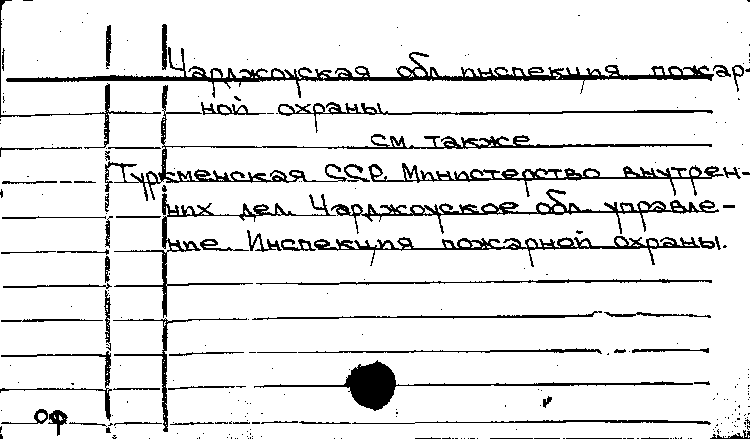 Чарджоуская обл. инспекция пожар-
ной охраны.
см. также
Туркменская ССР. Министерство внутрен-
них дел. Чарджоуское обл. управле-
ние. Инспекция пожарной охраны.
оф